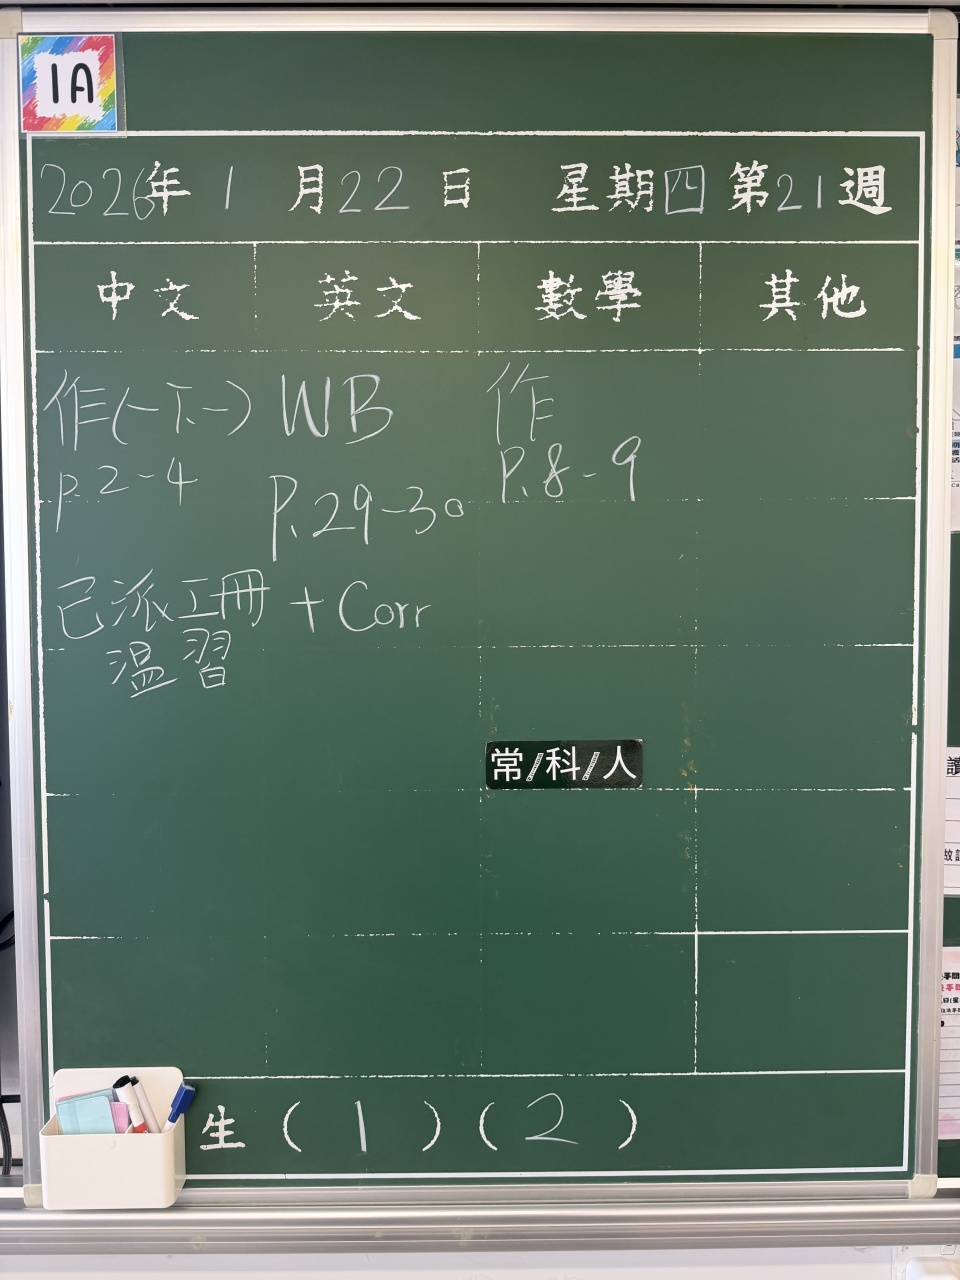 1A
2026年1月22日 星期四 第21週
中文 英文 數學 其他
作(一下一)
p.2-4
已派工冊
溫習
WB
P.29-30
+ Corr
作
P.8-9
常/科/人
生(1)(2)